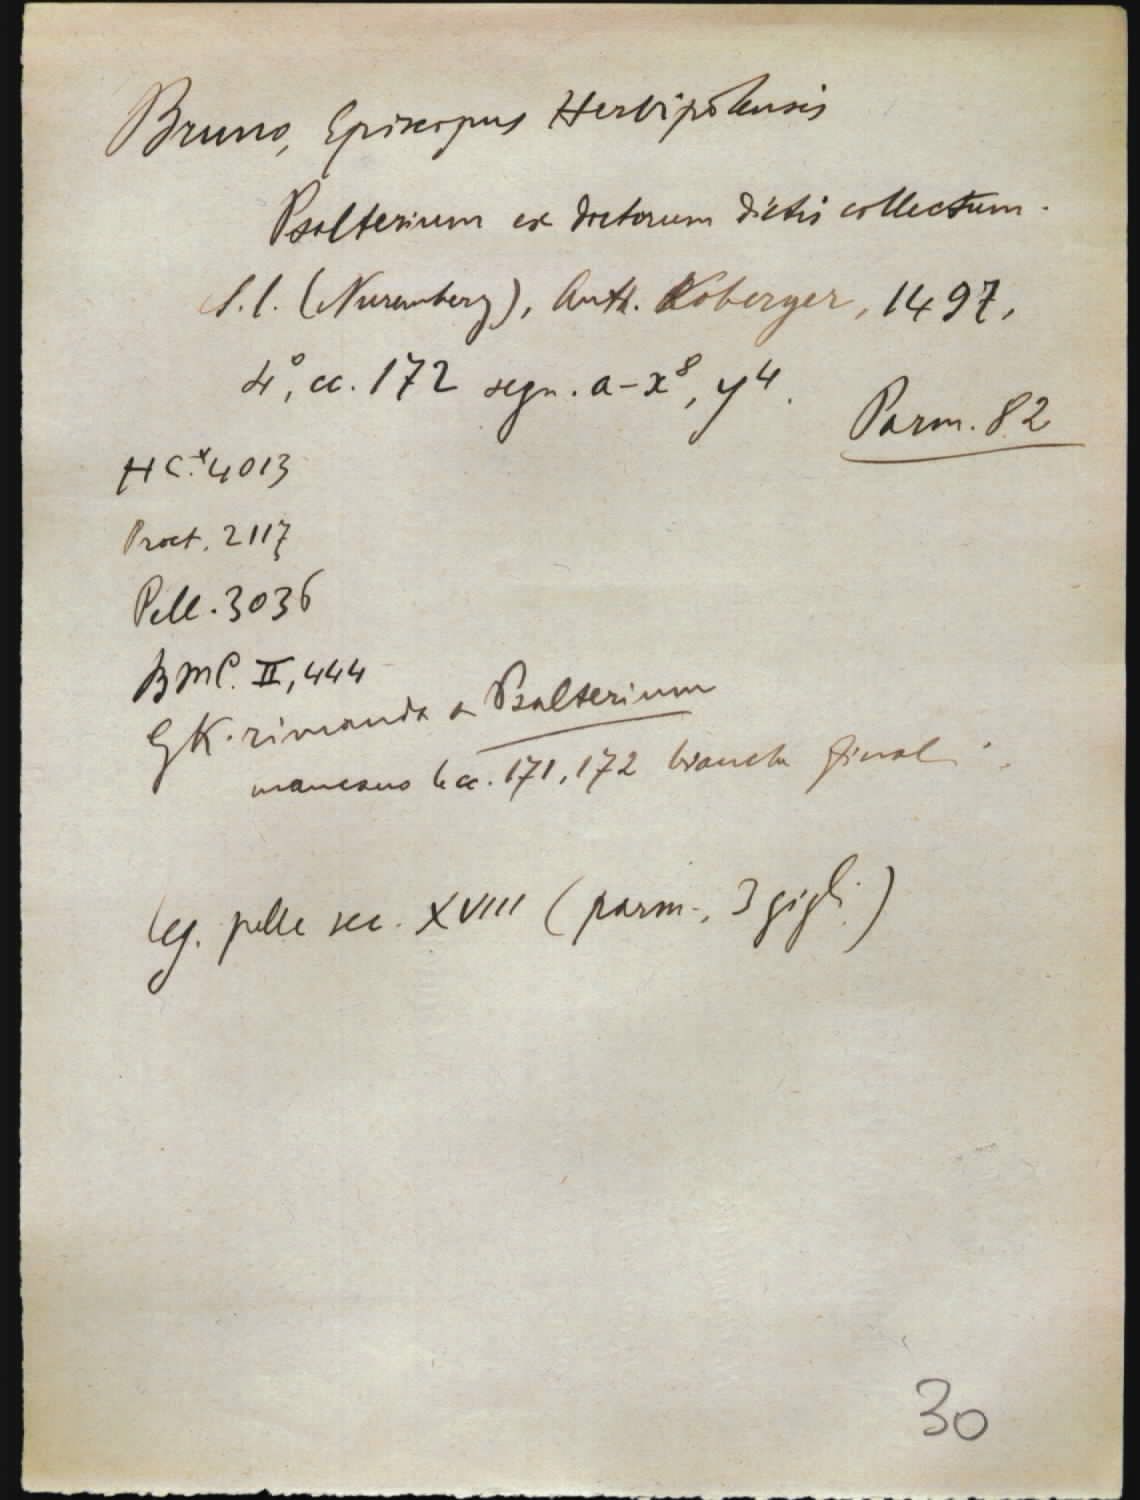 Bruno, Episcopus Herbipolensis
Psalterium ex doctorum dictis collectum.
S. l. (Nuremberg), Anth. Koberger, 1497,
4°, cc. 172 segn. a-x⁸, y⁴.
Parm. 82
HC.*4013
Proct. 2117
Pell. 3036
BMC. II, 444
GK. rimanda a Psalterium
mancano le cc. 171, 172 bianche finali.
Leg. pelle sec. XVIII (parm., 3 gigli)
30